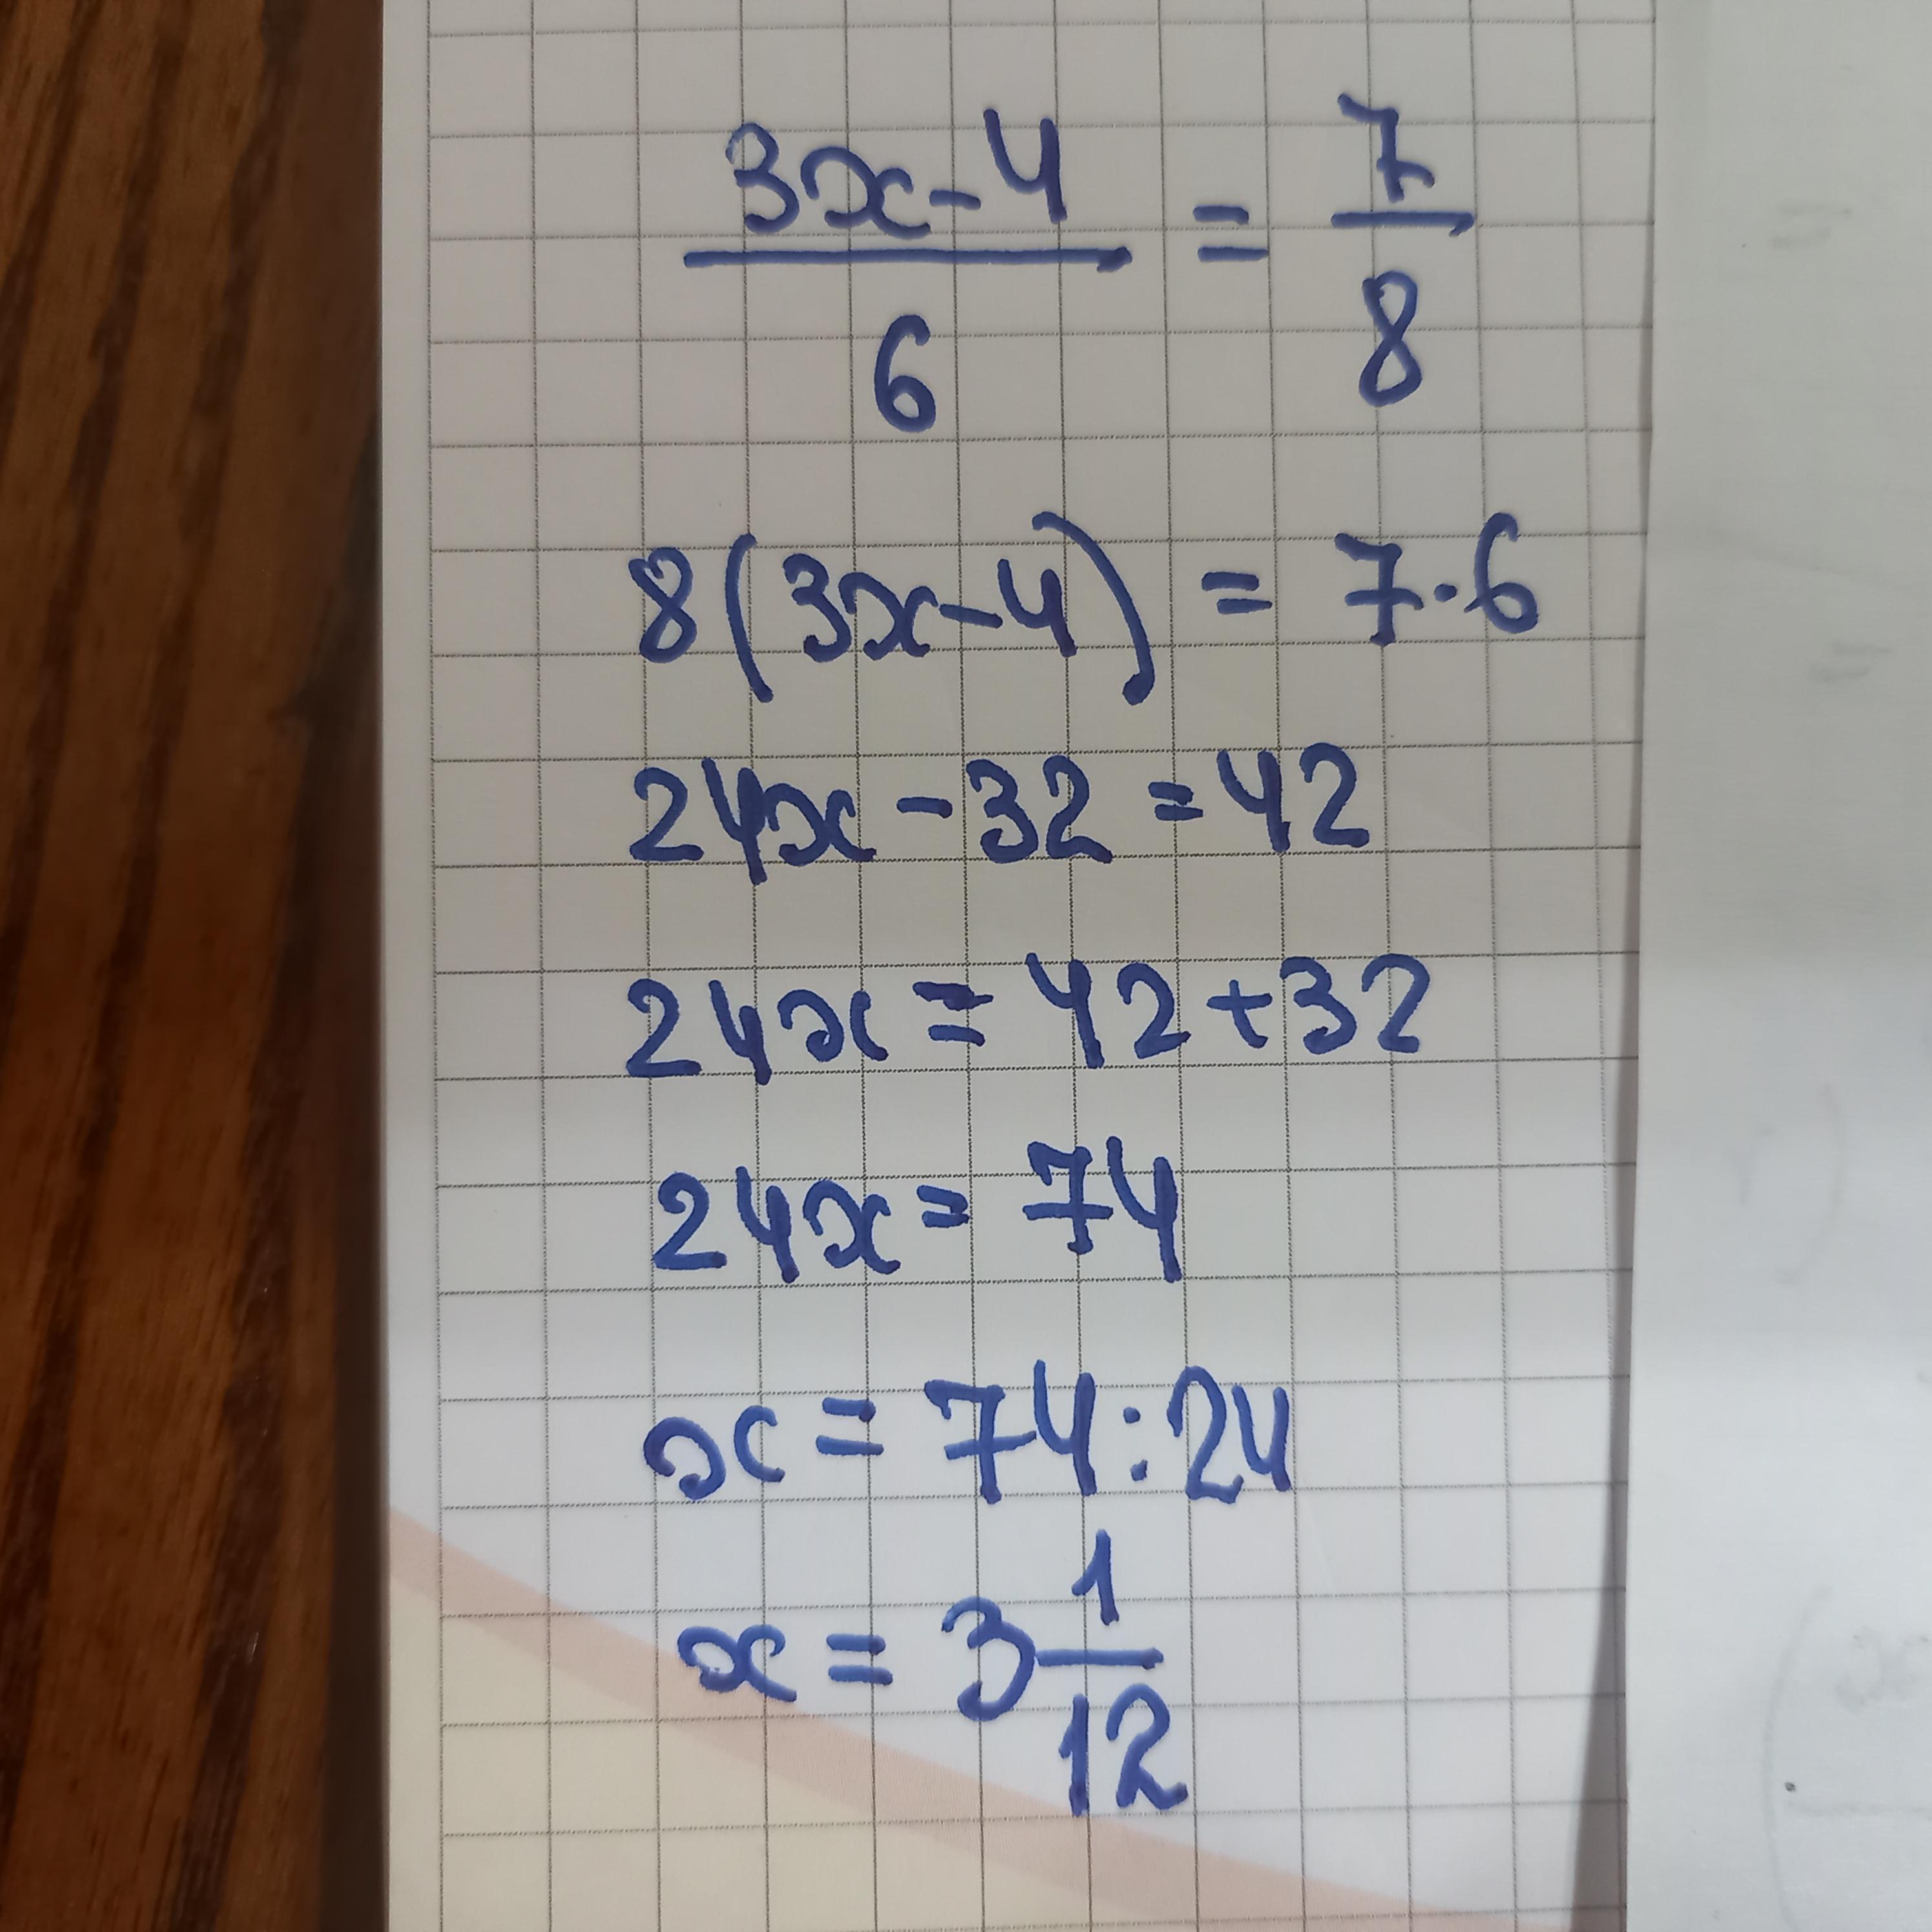 3x-4/6 = 7/8
8(3x-4) = 7·6
24x-32=42
24x=42+32
24x=74
x=74:24
x=3 1/12